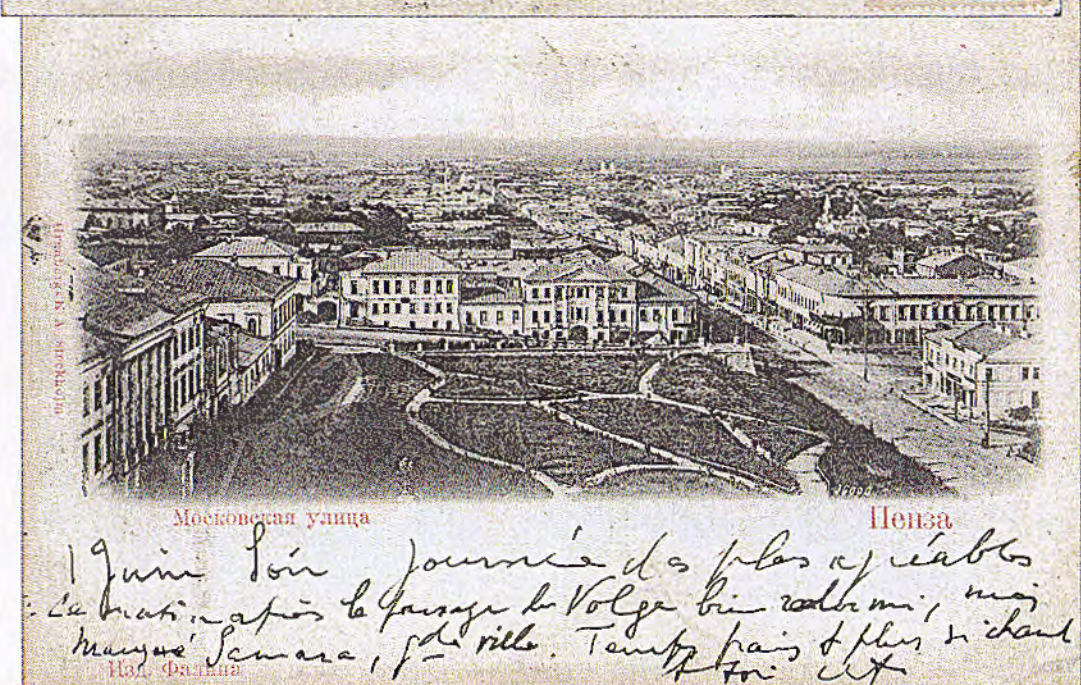 Московская улица
Пенза
1 Juin Soir Journée des plus agréables
Ce matin après le passage du Volga bien redormi, mais
manqué Samara, gde ville. Temps frais & plus si chaud
Изд. Фалина